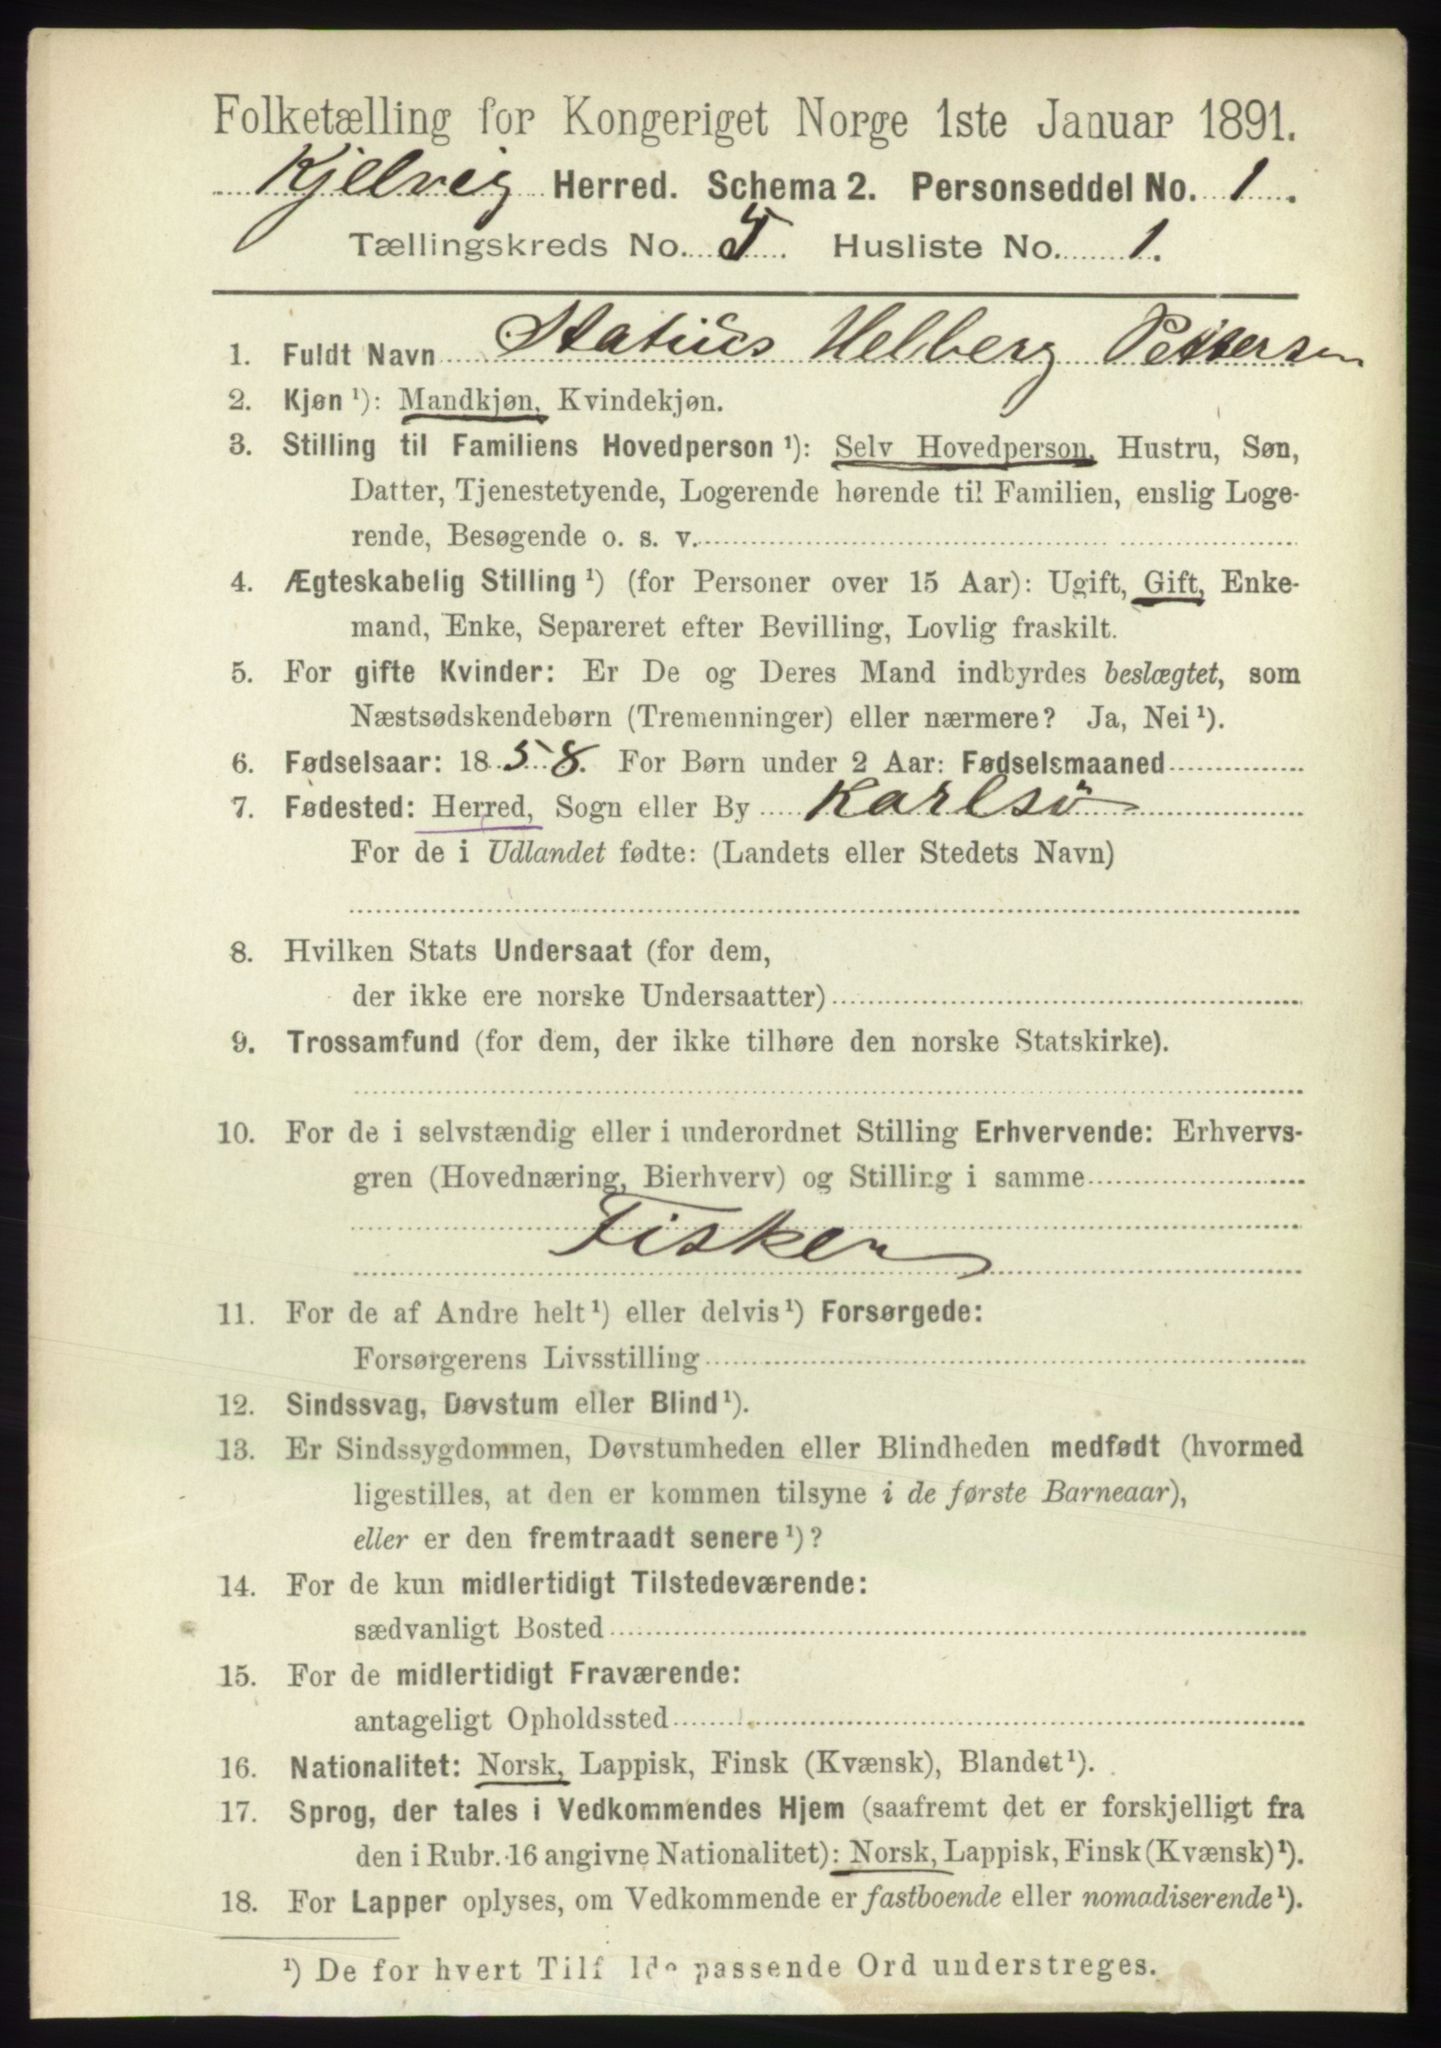 Folketælling for Kongeriget Norge 1ste Januar 1891.
Kjelvig Herred. Schema 2. Personseddel No. 1.
Tællingskreds No. 5. Husliste No. 1.
1. Fuldt Navn Statius Helberg Pettersen
2. Kjøn ¹): Mandkjøn, Kvindekjøn.
3. Stilling til Familiens Hovedperson ¹): Selv Hovedperson, Hustru, Søn,
Datter, Tjenestetyende, Logerende hørende til Familien, enslig Loge-
rende, Besøgende o. s. v.
4. Ægteskabelig Stilling ¹) (for Personer over 15 Aar): Ugift, Gift, Enke-
mand, Enke, Separeret efter Bevilling, Lovlig fraskilt.
5. For gifte Kvinder: Er De og Deres Mand indbyrdes beslægtet, som
Næstsødskendebørn (Tremenninger) eller nærmere? Ja, Nei ¹).
6. Fødselsaar: 1858. For Børn under 2 Aar: Fødselsmaaned
7. Fødested: Herred, Sogn eller By Karlsö
For de i Udlandet fødte: (Landets eller Stedets Navn)
8. Hvilken Stats Undersaat (for dem,
der ikke ere norske Undersaatter)
9. Trossamfund (for dem, der ikke tilhøre den norske Statskirke).
10. For de i selvstændig eller i underordnet Stilling Erhvervende: Erhvervs-
gren (Hovednæring, Bierhverv) og Stilling i samme
Fisker
11. For de af Andre helt ¹) eller delvis ¹) Forsørgede:
Forsørgerens Livsstilling
12. Sindssvag, Døvstum eller Blind ¹).
13. Er Sindssygdommen, Døvstumheden eller Blindheden medfødt (hvormed
ligestilles, at den er kommen tilsyne i de første Barneaar),
eller er den fremtraadt senere ¹)?
14. For de kun midlertidigt Tilstedeværende:
sædvanligt Bosted
15. For de midlertidigt Fraværende:
antageligt Opholdssted
16. Nationalitet: Norsk, Lappisk, Finsk (Kvænsk), Blandet ¹).
17. Sprog, der tales i Vedkommendes Hjem (saafremt det er forskjelligt fra
den i Rubr. 16 angivne Nationalitet): Norsk, Lappisk, Finsk (Kvænsk) ¹).
18. For Lapper oplyses, om Vedkommende er fastboende eller nomadiserende ¹).
¹) De for hvert Tilf lde passende Ord understreges.